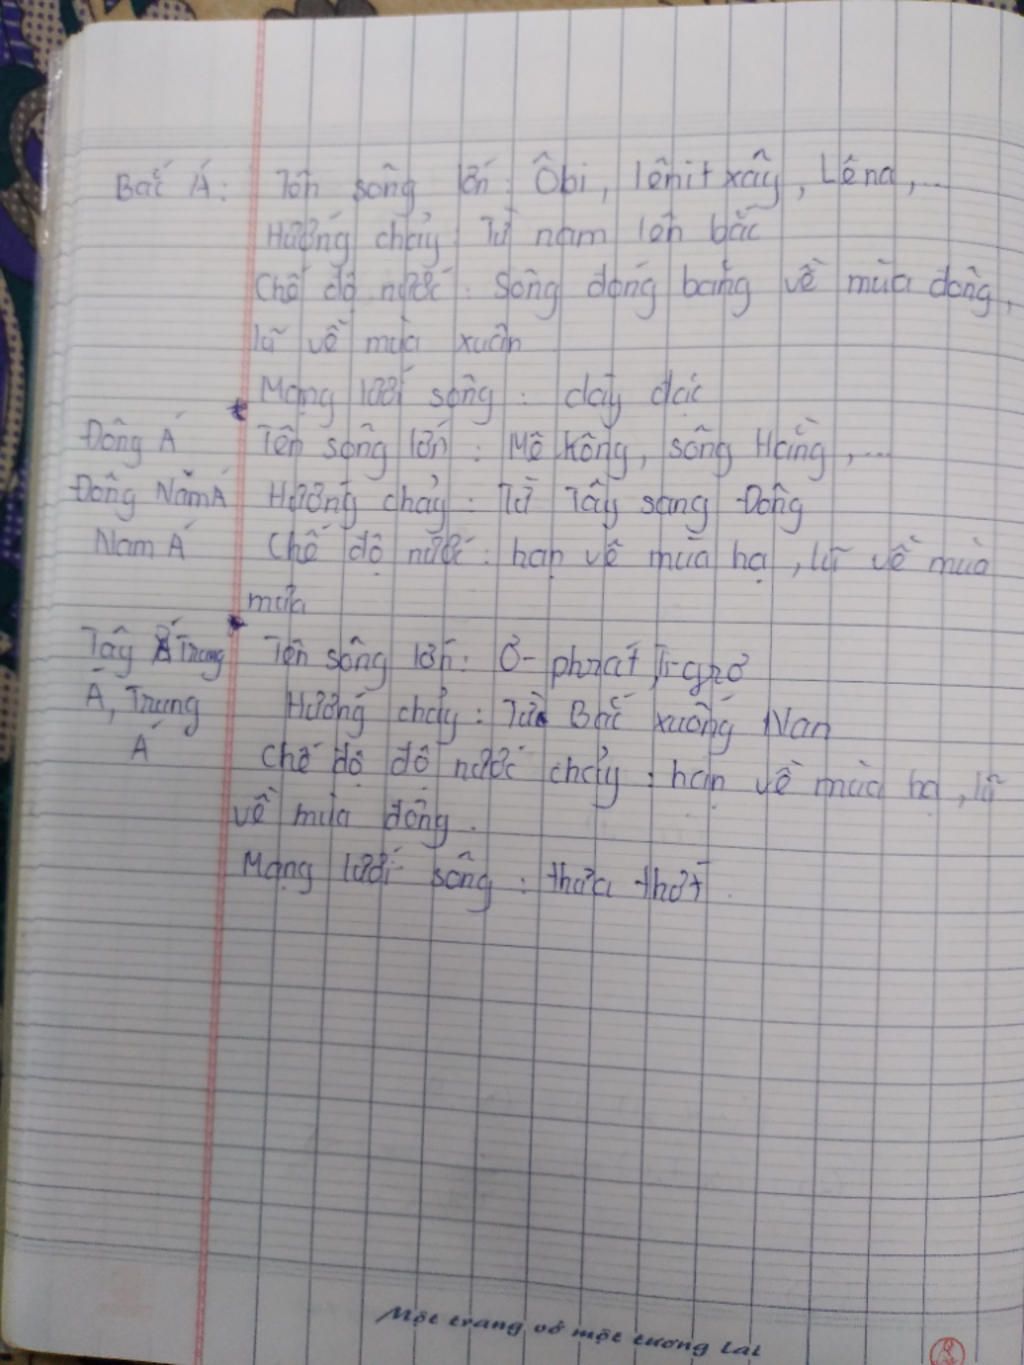 Bắc Á: Tên sông lớn: Ôbi, Iênitxây, Lêna,...
Hướng chảy: Từ nam lên bắc
Chế độ nước: Sông đóng băng về mùa đông,
lũ về mùa xuân
Mạng lưới sông: dày đặc
Đông Á Tên sông lớn: Mê Kông, sông Hằng,...
Đông Nam Á Hướng chảy: Từ Tây sang Đông
Nam Á Chế độ nước: hạn về mùa hạ, lũ về mùa
mưa
Tây Á Trung Tên sông lớn: Ơ-phrat, Ti-grơ
Á, Trung Hướng chảy: Từ Bắc xuống Nan
Á Chế độ độ nước chảy: hạn về mùa hạ, lũ
về mùa đông.
Mạng lưới sông: thưa thớt.
Một trang vở một tương lai